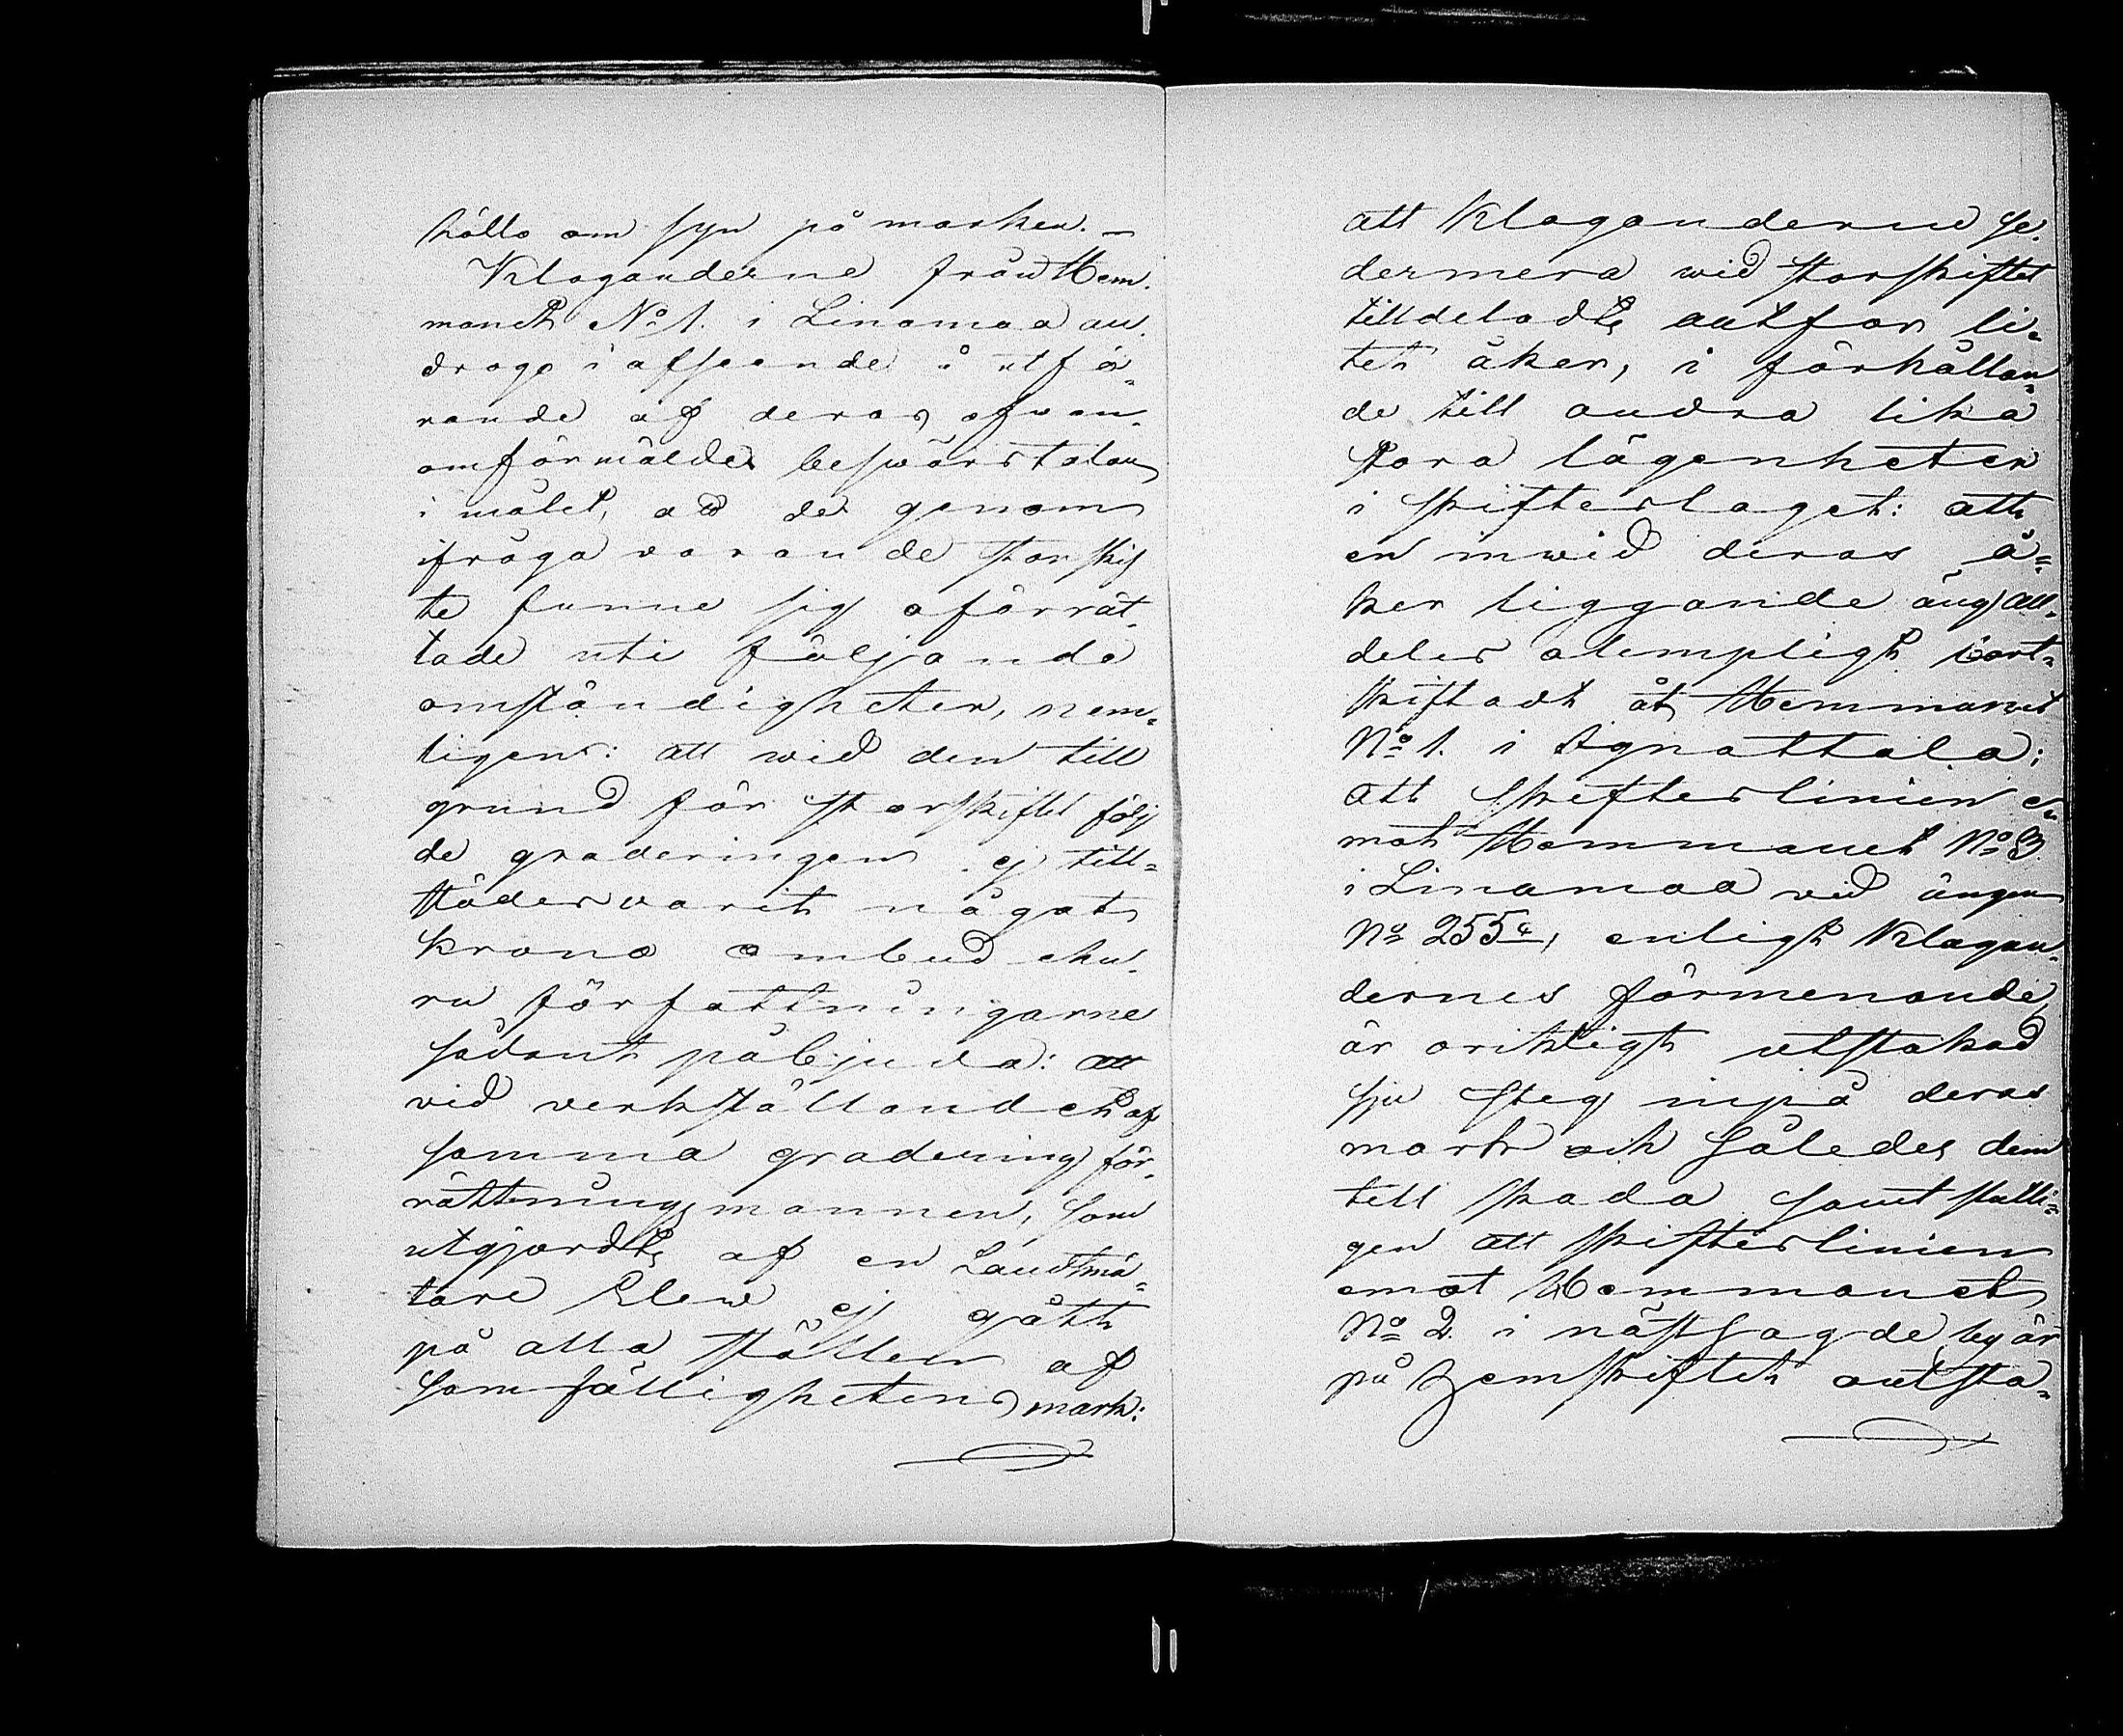 hålla om syn på marken. –
Klaganderne från Hem-
manet No 1. i Linamaa an-
drogo i afseende å utfö-
rande af deras ofvan-
omförmälde besvärstalan
i målet, att de genom
ifrågavarande storskif
te funne sig oförrät-
tade uti följande
omständigheter, nem-
ligen: att wid den till
grund för storskiftet följ
de graderingen ej till-
städesvarit något
krono ombud ehu-
ru författningarne
sådant påbjuda: att
vid verkställandet af
samma gradering för-
rättningsmannen, som
utgjordts af en Landtmä-
tare Elew ej gått
på alla ställen af
samfällighetens mark:
att Klaganderne se-
dermera wid storskiftet
tilldeladts alltför li-
tet åker, i förhållan-
de till andra lika
stora lägenheter
i skifteslaget: att
en inwid deras å-
ker liggande äng all-
deles olempligt bort-
skiftadt åt Hemmanet
No 1. i Ignattala;
att skifteslinien e-
mot Hemmanet No 3.
i Linamaa vid ängen
No 255, enligt Klagan-
dernes förmenande,
är oriktigt utstakad
sju steg inpå deras
mark och således dem
till skada samt slutli-
gen att skifteslinien
emot Hemmanet
No 2. i nästsagde by är
på hemskiftet outsta-